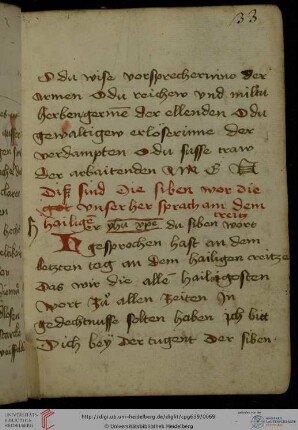 33
O du wise vorsprecherinne der
armen O du reichew vnd miltu
herbergerine der ellenden O du
gewaltigew erloserinne der
verdampten O du susse traw
der arbaitenden A M E N
Diß sind die siben wor die
got vnser her sprach an dem
heilige creitz
H er yhu xpe du siben wort
gesprochen hast an dem
letzten tag an dem hailigen creitze
das wir die alle hailigesten
wort zu allen zeiten in
gedechtnusse solten haben Ich bitt
Dich bey der tugent der siben
UNIVERSITÄTS-
BIBLIOTHEK
HEIDELBERG
http://digi.ub.uni-heidelberg.de/diglit/cpg537/0069
© Universitätsbibliothek Heidelberg